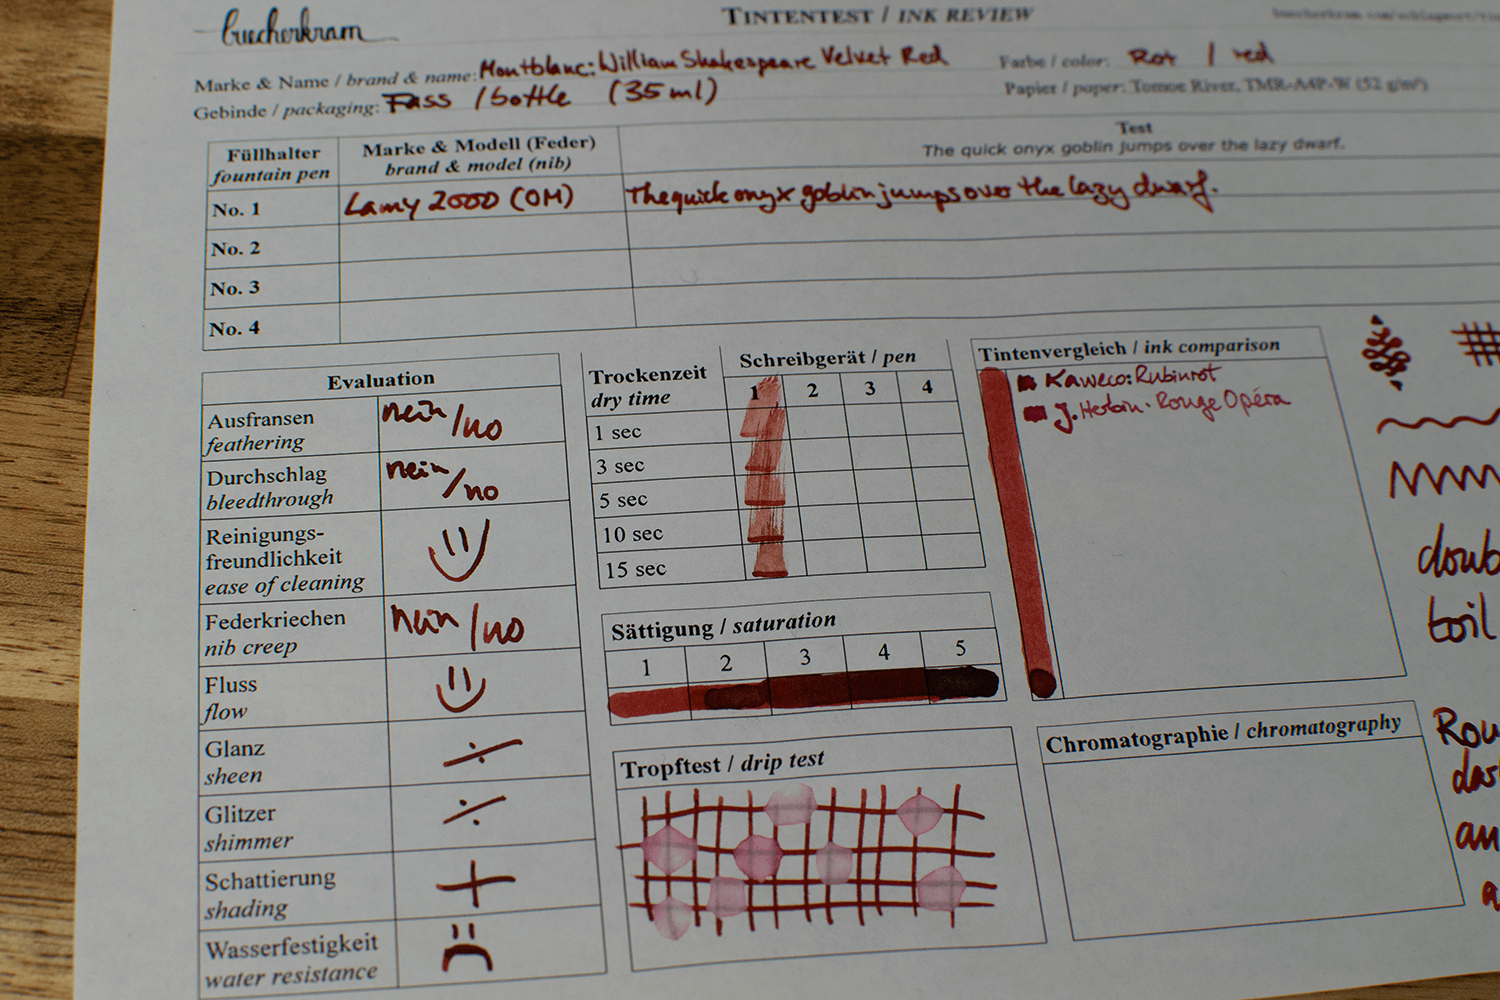 buecherkram
TINTENTEST / INK REVIEW
Marke & Name / brand & name: Montblanc: William Shakespeare Velvet Red
Farbe / color: Rot / red
Gebinde / packaging: Fass / bottle (35 ml)
Papier / paper: Tomoe River, TMR-A4P-W (52 g/m²)
Füllhalter
fountain pen
Marke & Modell (Feder)
brand & model (nib)
Test
The quick onyx goblin jumps over the lazy dwarf.
No. 1 Lamy 2000 (OM) The quick onyx goblin jumps over the lazy dwarf.
No. 2
No. 3
No. 4
Evaluation
Ausfransen
feathering
nein/no
Durchschlag
bleedthrough
nein/no
Reinigungs-
freundlichkeit
ease of cleaning
Federkriechen
nib creep
nein/no
Fluss
flow
Glanz
sheen
÷
Glitzer
shimmer
÷
Schattierung
shading
+
Wasserfestigkeit
water resistance
Trockenzeit
dry time
Schreibgerät / pen
1 2 3 4
1 sec
3 sec
5 sec
10 sec
15 sec
Sättigung / saturation
1 2 3 4 5
Tropftest / drip test
Tintenvergleich / ink comparison
Kaweco: Rubinrot
J. Herbin: Rouge Opéra
Chromatographie / chromatography
doub
toil
Rou
das
an
a